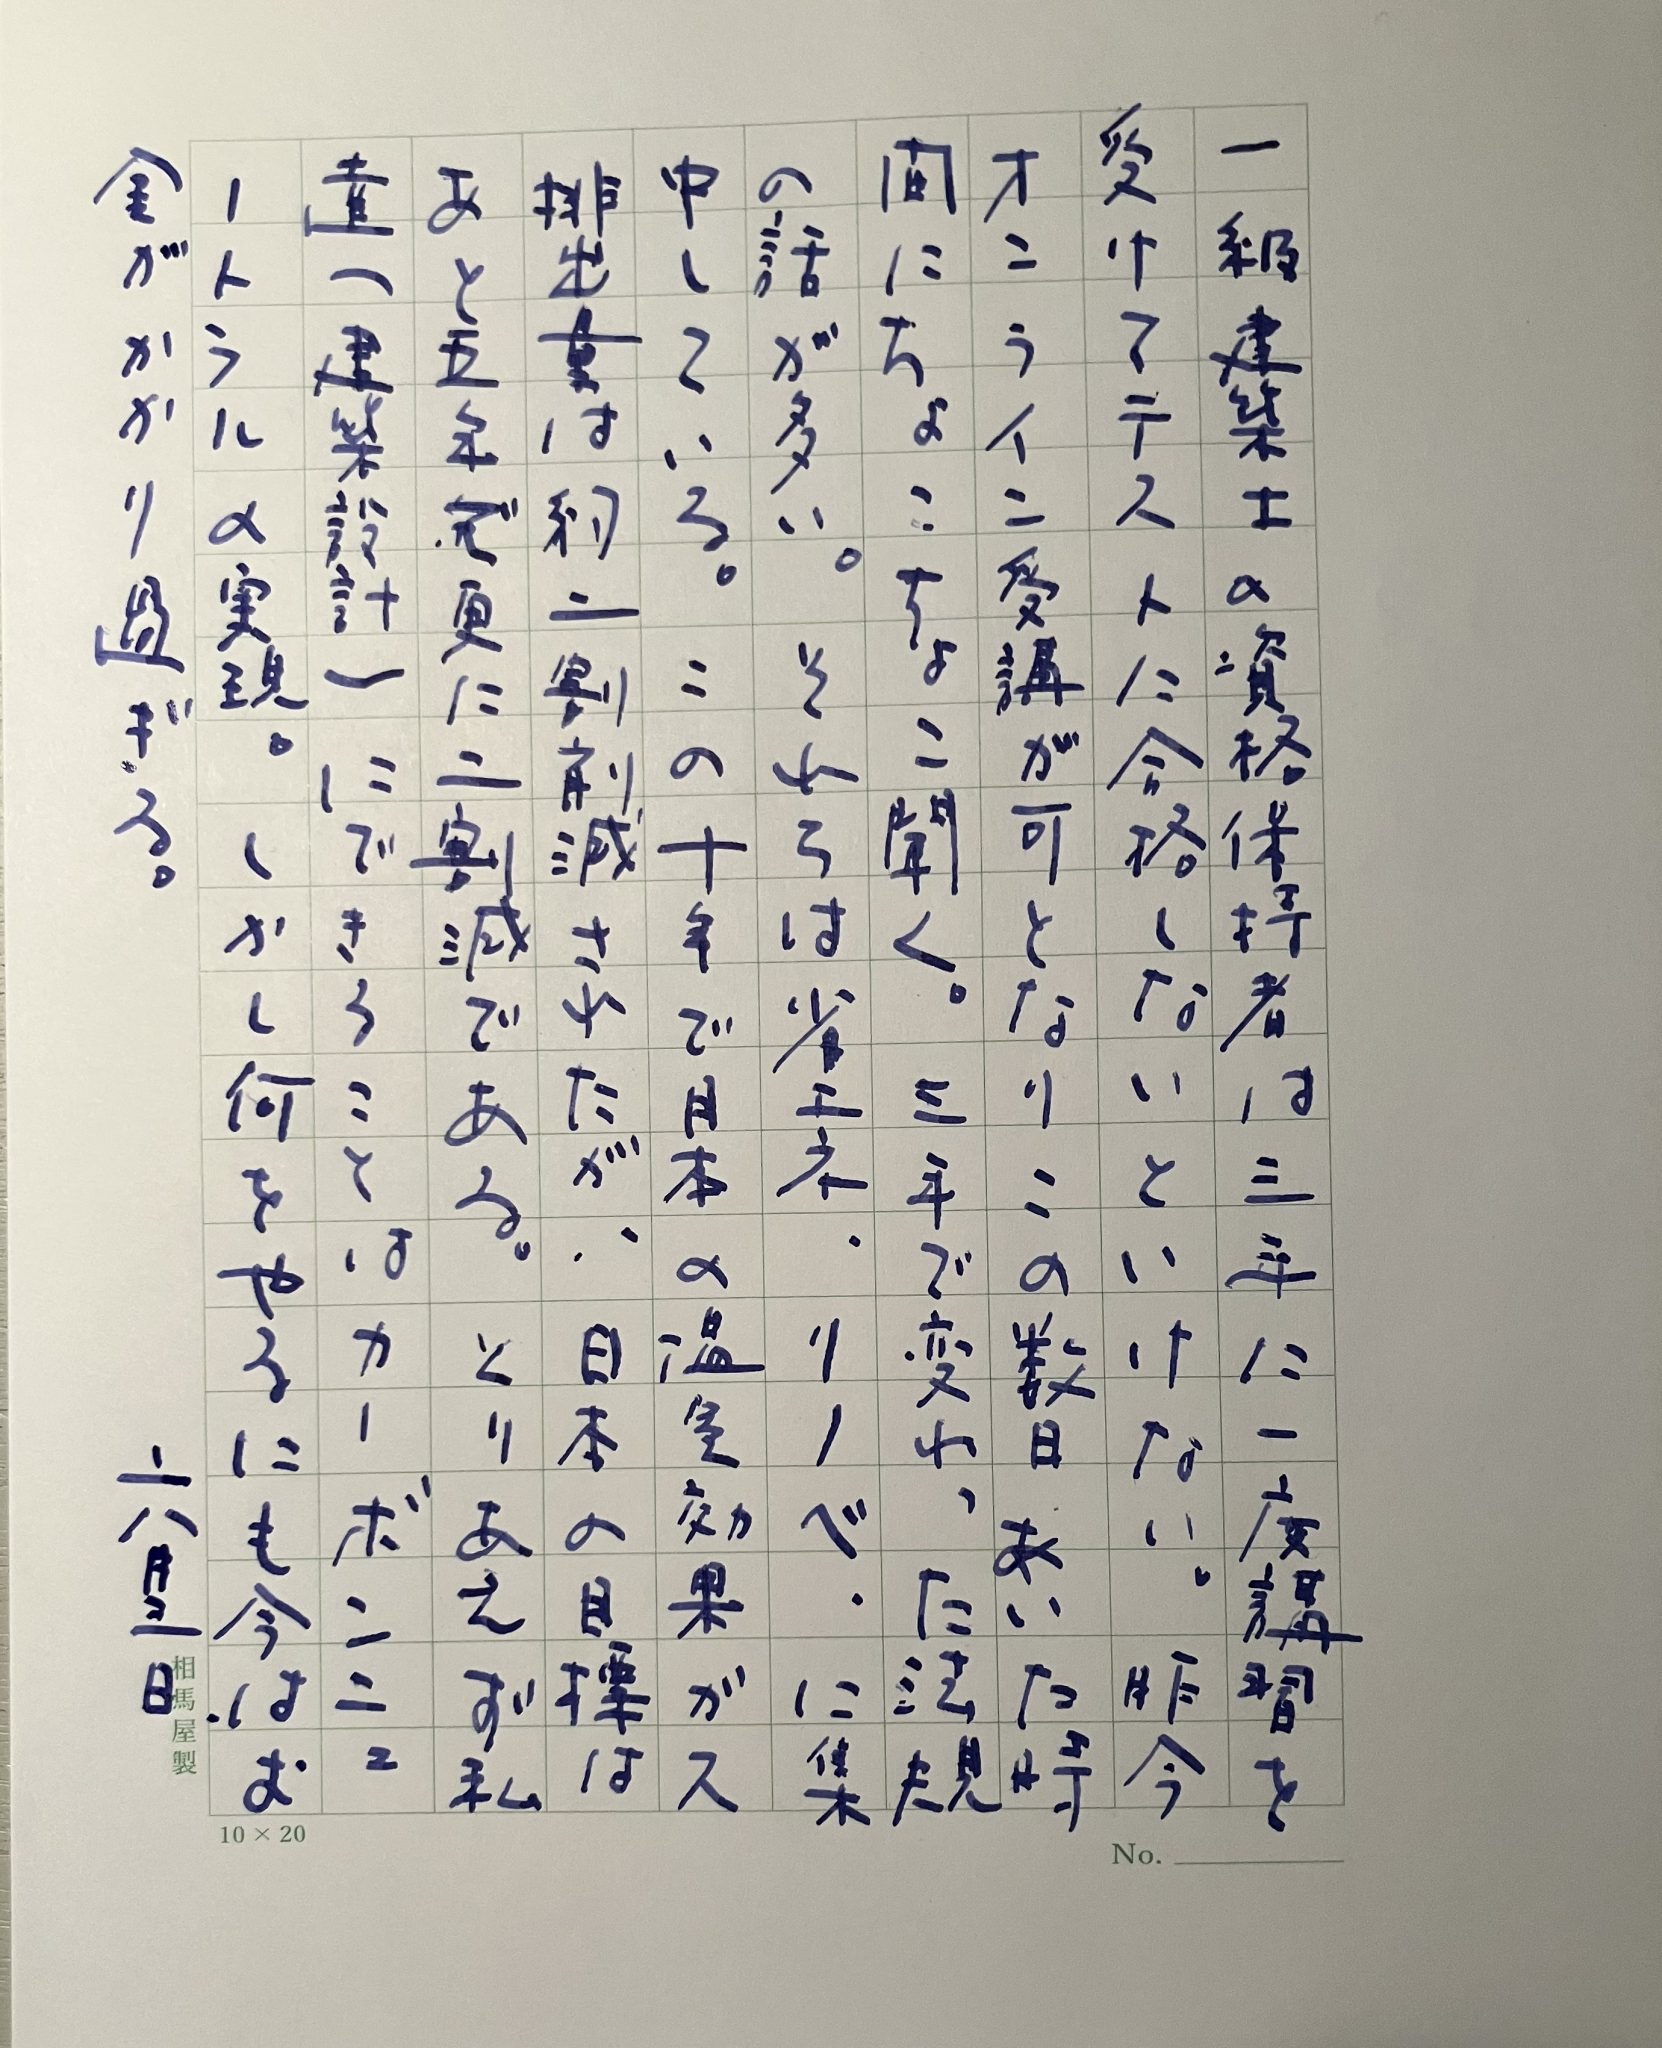 一級建築士の資格保持者は三年に一度講習を
受けてテストに合格しないといけない。昨今
オンラインで受講が可となりこの数日あいた時
間にちょこちょこ聞く。三年で変わった法規
の話が多い。それらは省エネ・リノベ・に集
中している。この十年で日本の温室効果ガス
排出量は約二割削減されたが、日本の目標は
あと五年で更に二割減である。とりあえず私
達(建築設計)にできることはカーボンニュ
ートラルの実現。しかし何をやるにも今はお
金がかかり過ぎる。
六月
日
相馬屋製
10×20
No.